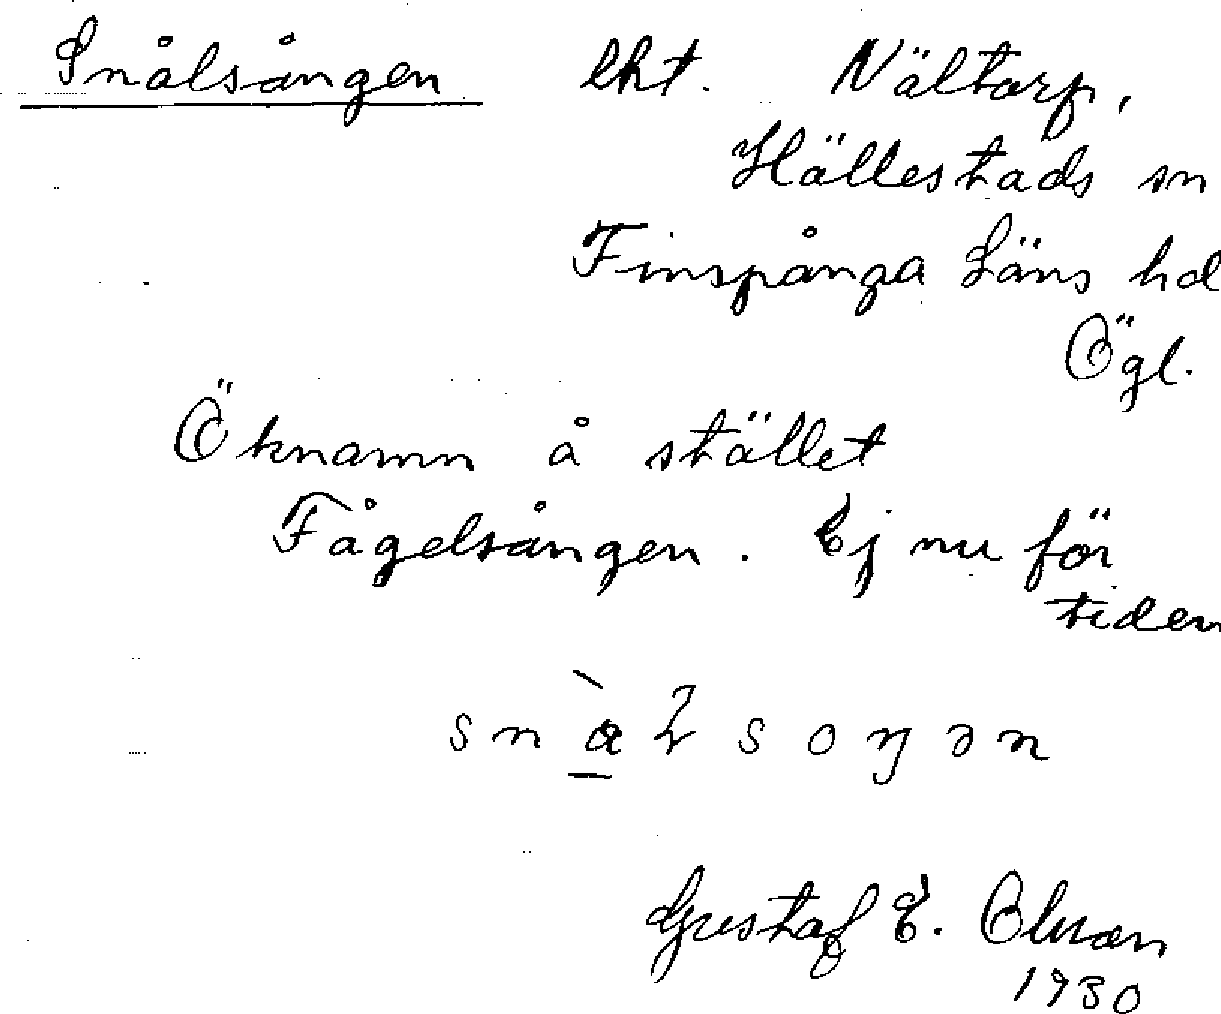 Snålsången lht. Nältorp,
Hällestads sn
Finspånga Läns hd
Ögl.
Öknamn å stället
Fågelsången. Ej nu för
tiden
Gustaf E. Olsson
1930